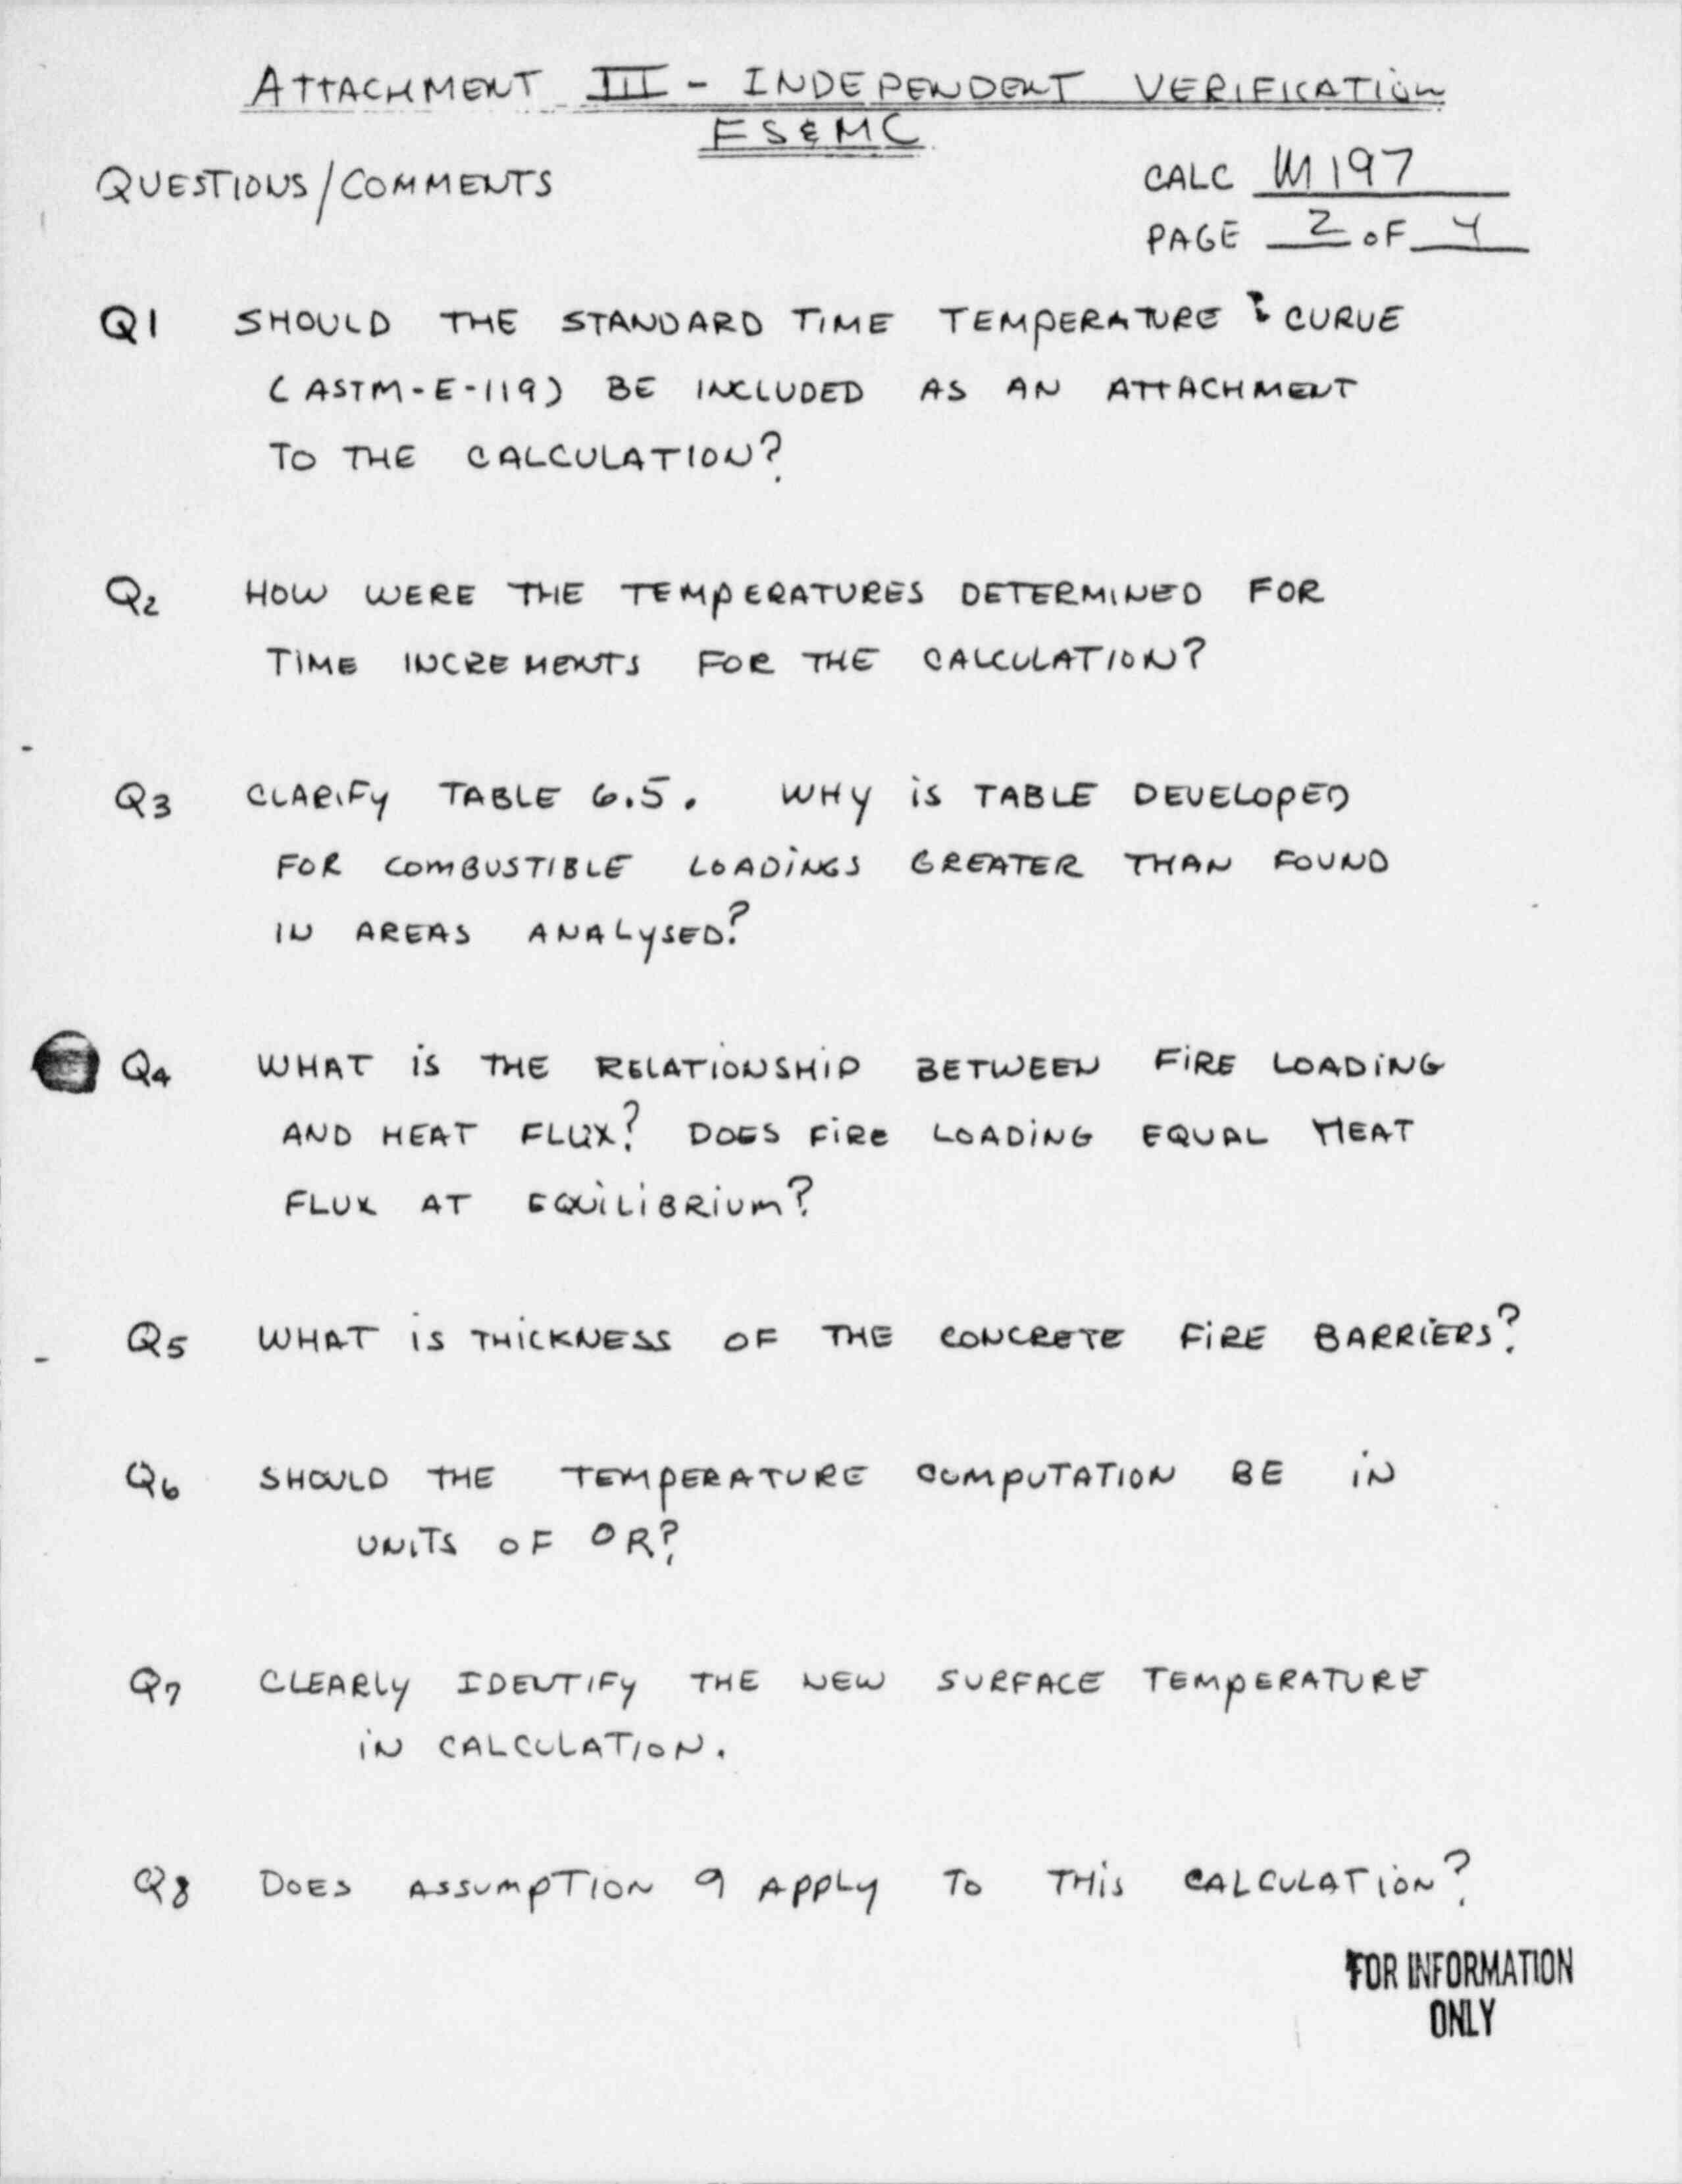 ATTACHMENT III - INDEPENDENT VERIFICATION
FS&MC
QUESTIONS/COMMENTS
CALC M197
PAGE 2 OF 4
Q1 SHOULD THE STANDARD TIME TEMPERATURE CURVE
(ASTM-E-119) BE INCLUDED AS AN ATTACHMENT
TO THE CALCULATION?
Q2 HOW WERE THE TEMPERATURES DETERMINED FOR
TIME INCREMENTS FOR THE CALCULATION?
Q3 CLARIFY TABLE 6.5. WHY IS TABLE DEVELOPED
FOR COMBUSTIBLE LOADINGS GREATER THAN FOUND
IN AREAS ANALYSED?
Q4 WHAT IS THE RELATIONSHIP BETWEEN FIRE LOADING
AND HEAT FLUX? DOES FIRE LOADING EQUAL HEAT
FLUX AT EQUILIBRIUM?
Q5 WHAT IS THICKNESS OF THE CONCRETE FIRE BARRIERS?
Q6 SHOULD THE TEMPERATURE COMPUTATION BE IN
UNITS OF °R?
Q7 CLEARLY IDENTIFY THE NEW SURFACE TEMPERATURE
IN CALCULATION.
Q8 DOES ASSUMPTION 9 APPLY TO THIS CALCULATION?
FOR INFORMATION
ONLY